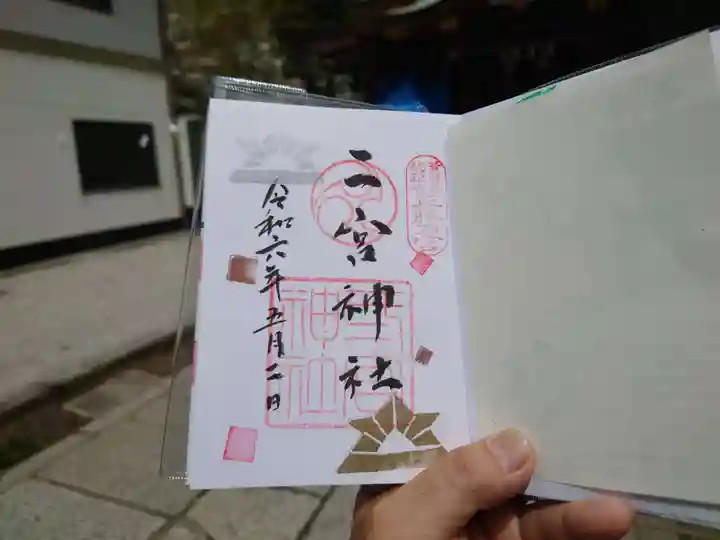 二宮神社
令和六年五月二日
二宮
神社